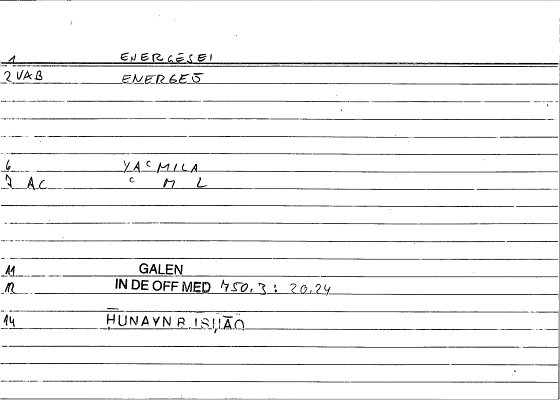 1 ENERGĒSEI
2 VAB ENERGEŌ
6 YAᶜMILA
7 AC ᶜ M L
11 GALEN
12 IN DE OFF MED 750.3 : 20.24
14 ḤUNAYN B ISḤĀQ